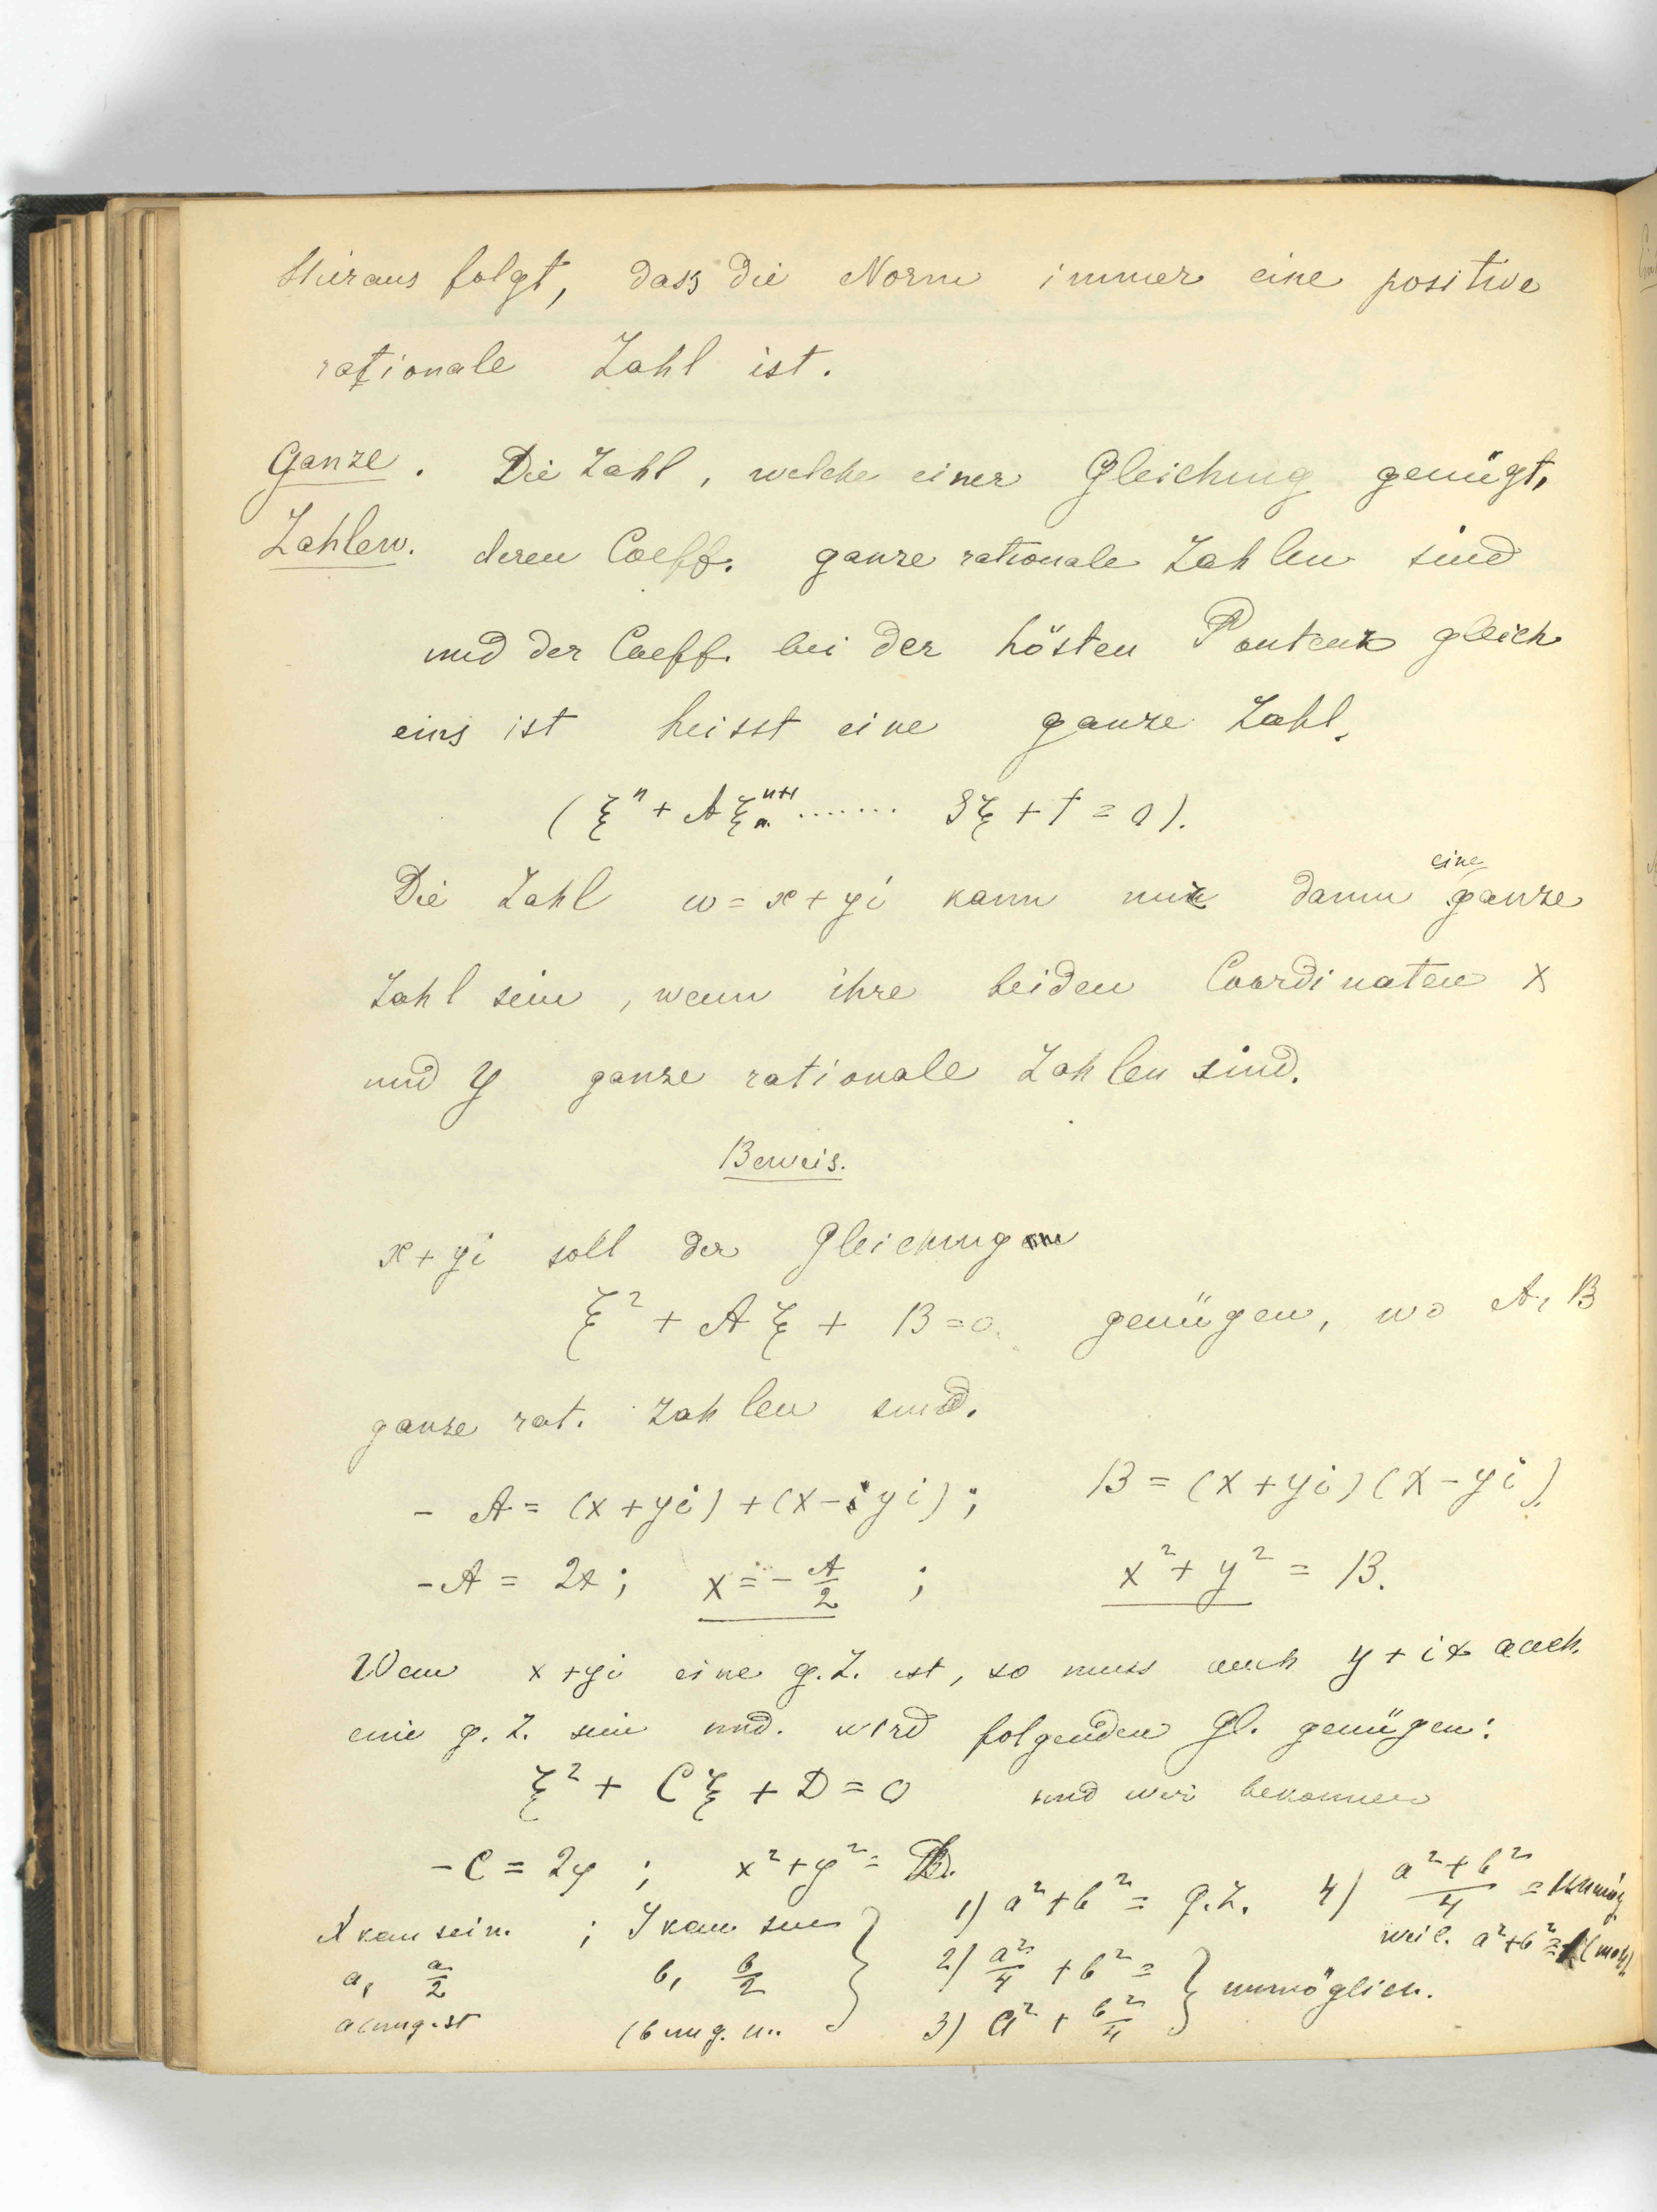 Hieraus folgt, dass die Norm immer eine positive
rationale Zahl ist.
Ganze . Die Zahl, welche einer Gleichung genügt,
Zahlen. deren Coeff. ganze rationale Zahlen sind
und der Coeff. bei der hösten Pontenz gleich
eins ist heisst eine ganze Zahl.
(ξⁿ + Aξⁿ⁺¹ ....... Sξ + T = 0).
Die Zahl ω = x + yi kann nur dann eine ganze
Zahl sein, wenn ihre beiden Coordinaten x
und y ganze rationale Zahlen sind.
Beweis.
x + yi soll der Gleichung
ξ² + Aξ + B = 0 genügen, wo A, B
ganze rat. Zahlen sind.
- A = (x + yi) + (x - yi); B = (x + yi)(x - yi)
- A = 2x; x = - A/2 ; x² + y² = B.
Wenn x + yi eine g. Z. ist, so muss auch y + ix auch
eine g. Z. sein und wird folgenden Gl. genügen:
ξ² + Cξ + D = 0 und wir bekommen
- C = 2y ; x² + y² = D.
X kann sein ; Y kann sein } 1) a² + b² = g. Z. 4) (a² + b²)/4 =
a, a/2 b, b/2 2) a²/4 + b² = } unmöglich. weil a² + b² ≡
a ung. ist (b ung. 3) a² + b²/4